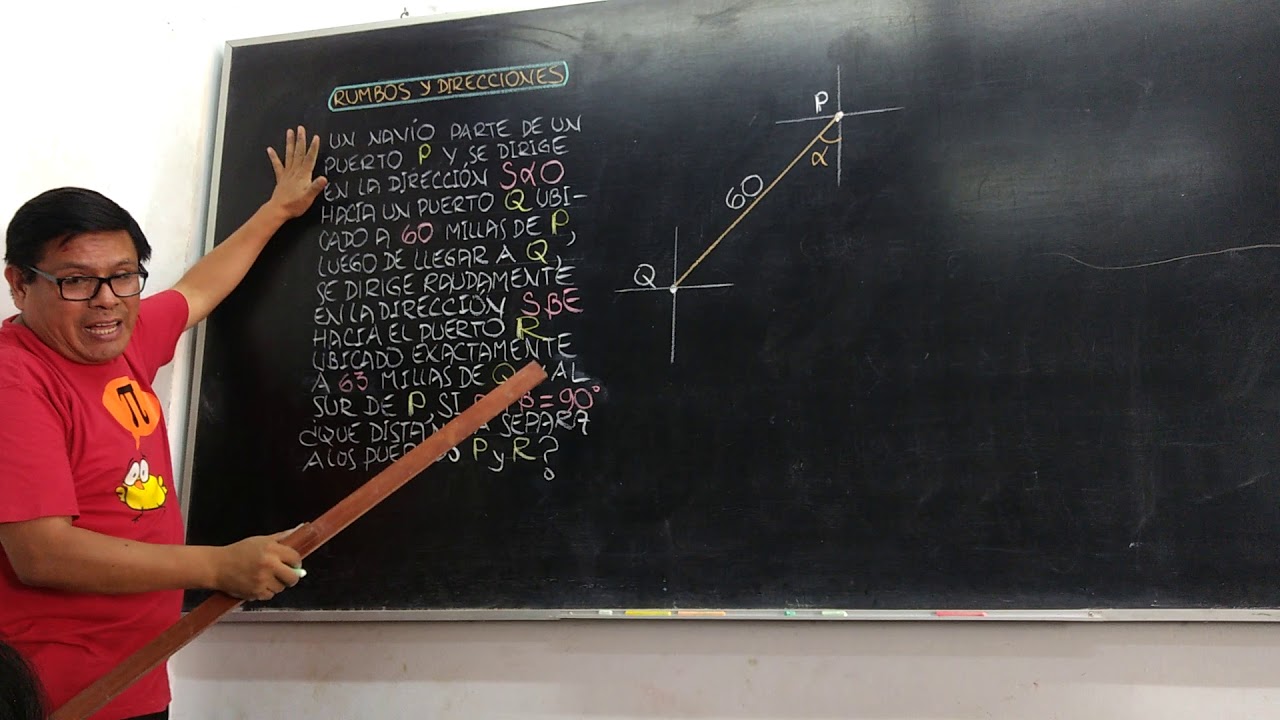 RUMBOS Y DIRECCIONES
UN NAVÍO PARTE DE UN
PUERTO P Y SE DIRIGE
EN LA DIRECCIÓN SαO
HACIA UN PUERTO Q UBI-
CADO A 60 MILLAS DE P,
LUEGO DE LLEGAR A Q,
SE DIRIGE RAUDAMENTE
EN LA DIRECCIÓN SβE
HACIA EL PUERTO R
UBICADO EXACTAMENTE
A 63 MILLAS DE Q AL
SUR DE P, SI β = 90°
¿QUE DISTA SEPARA
A LOS P y R?
P
α
60
Q
π